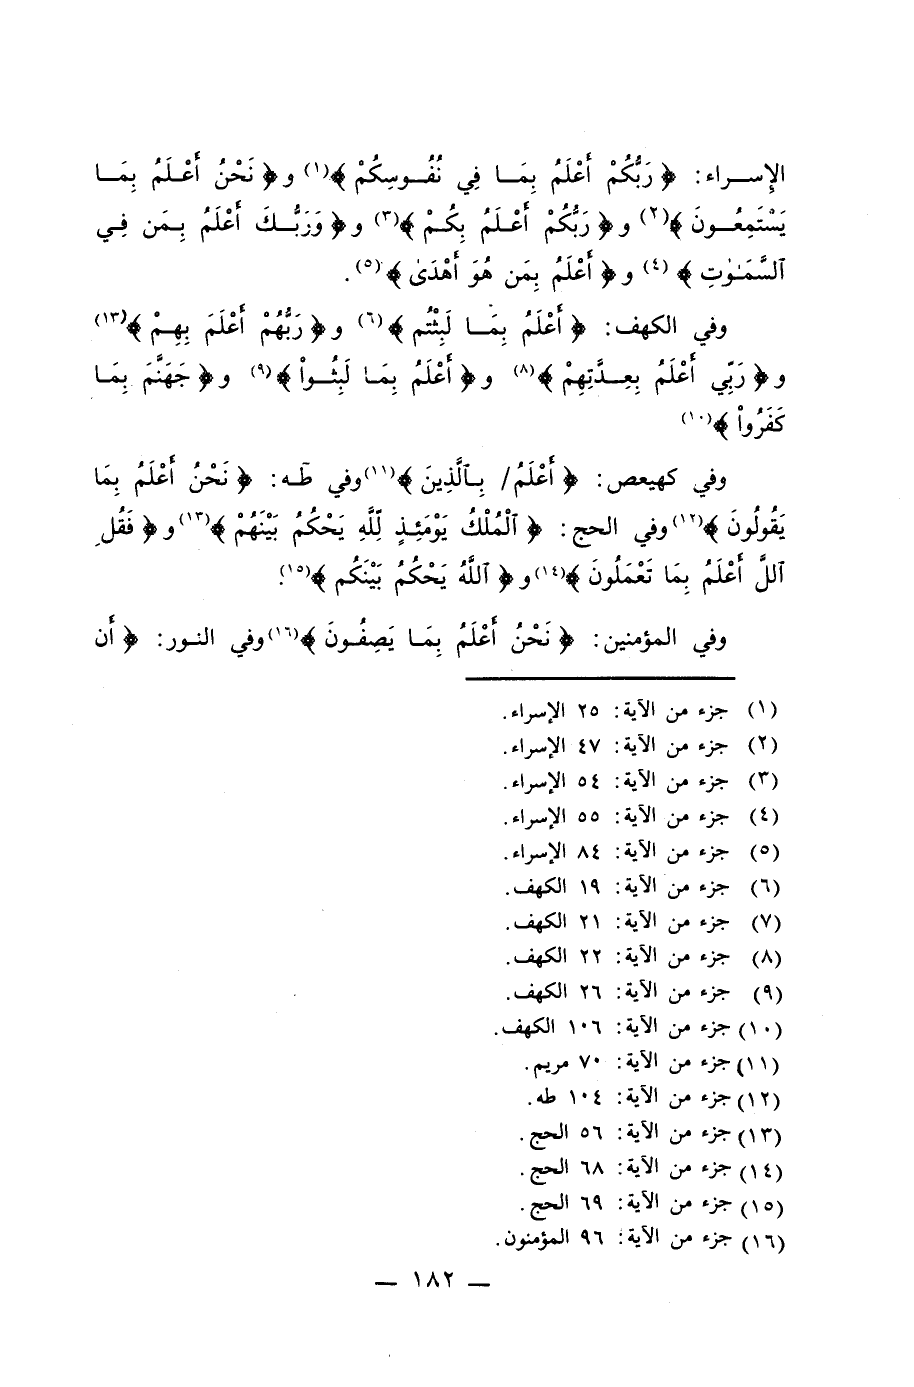 الإســراء: ﴿ رَبُّكُمْ أَعْلَمُ بِمَــا فِي نُفُــوسِكُمْ ﴾(١) و﴿ نَحْنُ أَعْـلَمُ بِمَــا
يَسْتَمِعُــونَ ﴾(٢) و﴿ رَبُّكُمْ أَعْـلَمُ بِكُـمْ ﴾(٣) و﴿ وَرَبُّــكَ أَعْلَمُ بِـمَن فِـي
ٱلسَّمَـٰوٰتِ ﴾ (٤) و﴿ أَعْلَمُ بِمَن هُوَ أَهْدَىٰ ﴾(٥).
وفي الكهف: ﴿ أَعْلَمُ بِمَــا لَبِثْتُم ﴾(٦) و﴿ رَبُّهُمْ أَعْلَمَ بِهِـمْ ﴾(١٣)
و﴿ رَبِّي أَعْلَمُ بِعِــدَّتِهِمْ ﴾(٨) و﴿ أَعْلَمُ بِمَـا لَبِثُــواْ ﴾(٩) و﴿ جَهَنَّمَ بِمَـا
كَفَرُواْ ﴾(١٠)
وفي كهيعص: ﴿ أَعْلَمُ/ بِـالَّذِينَ ﴾(١١)وفي طَـٰه: ﴿ نَحْنُ أَعْلَمُ بِمَا
يَقُولُونَ ﴾(١٢)وفي الحج: ﴿ ٱلْمُلْكُ يَوْمَئِـذٍ لِّلَّهِ يَحْكُمُ بَيْنَهُمْ ﴾(١٣)و﴿ فَقُلِ
ٱللَّ أَعْلَمُ بِمَا تَعْمَلُونَ ﴾(١٤)و﴿ ٱللَّهُ يَحْكُمُ بَيْنَكُم ﴾(١٥).
وفي المؤمنين: ﴿ نَحْنُ أَعْلَمُ بِمَـا يَصِفُـونَ ﴾(١٦)وفي النـور: ﴿ أَن
(١) جزء من الآية: ٢٥ الإسراء.
(٢) جزء من الآية: ٤٧ الإسراء.
(٣) جزء من الآية: ٥٤ الإسراء.
(٤) جزء من الآية: ٥٥ الإسراء.
(٥) جزء من الآية: ٨٤ الإسراء.
(٦) جزء من الآية: ١٩ الكهف.
(٧) جزء من الآية: ٢١ الكهف.
(٨) جزء من الآية: ٢٢ الكهف.
(٩) جزء من الآية: ٢٦ الكهف.
(١٠) جزء من الآية: ١٠٦ الكهف.
(١١) جزء من الآية: ٧٠ مريم.
(١٢) جزء من الآية: ١٠٤ طه.
(١٣) جزء من الآية: ٥٦ الحج.
(١٤) جزء من الآية: ٦٨ الحج.
(١٥) جزء من الآية: ٦٩ الحج.
(١٦) جزء من الآية: ٩٦ المؤمنون.
— ١٨٢ —